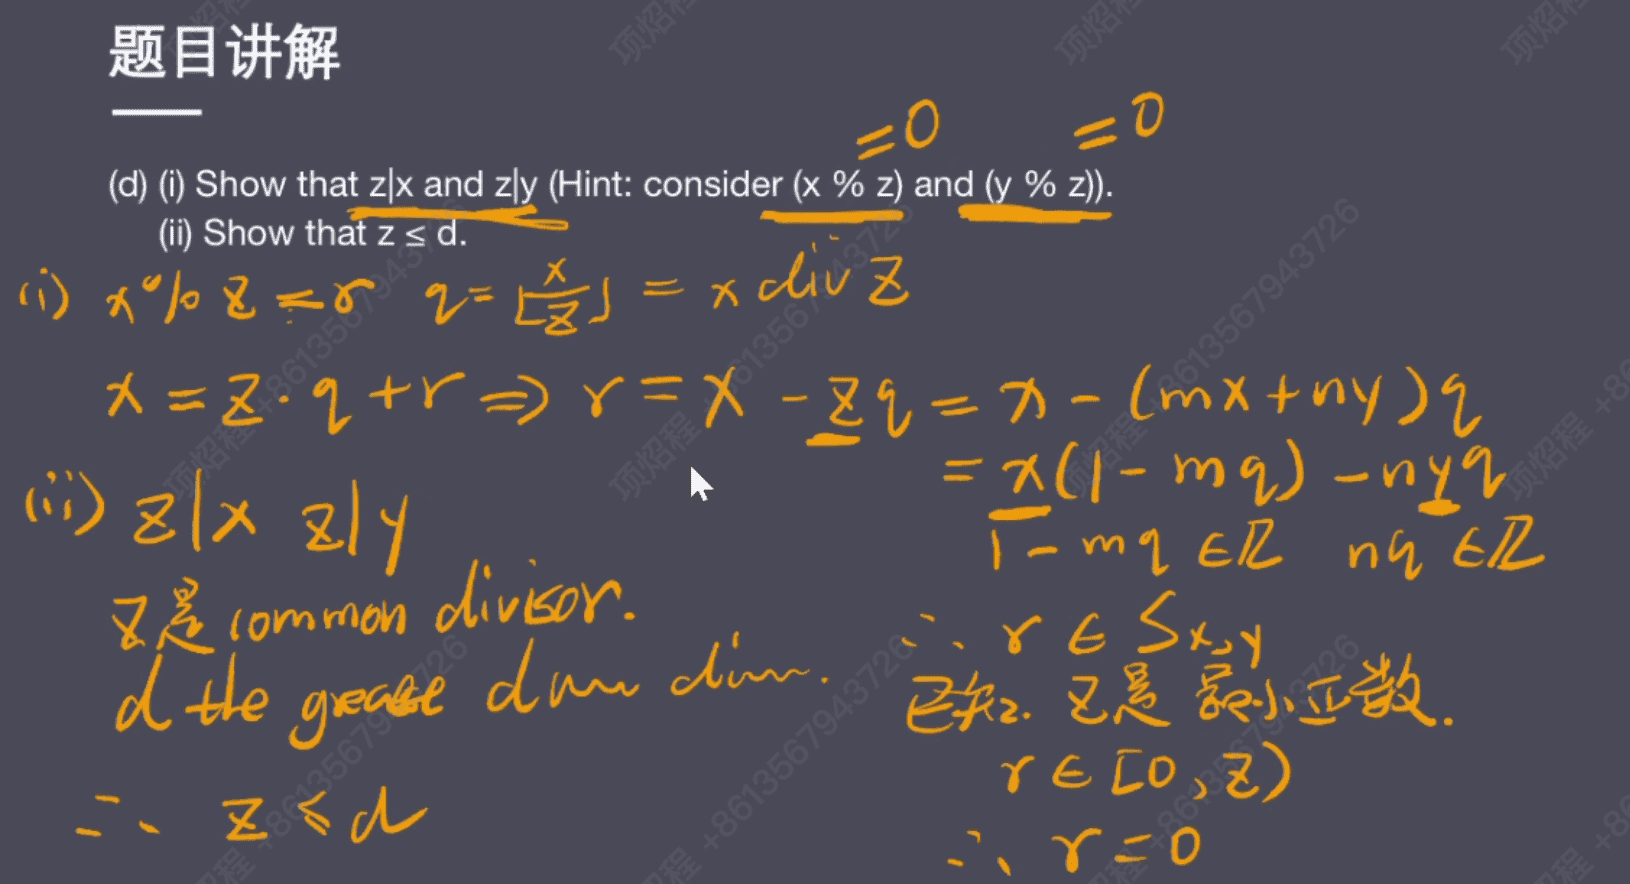 题目讲解
=0 =0
(d) (i) Show that z|x and z|y (Hint: consider (x % z) and (y % z)).
(ii) Show that z ≤ d.
(i) x % z = r q = ⌊x/z⌋ = x div z
x = z · q + r ⇒ r = x - zq = x - (mx + ny)q
= x(1 - mq) - nyq
1 - mq ∈ ℤ nq ∈ ℤ
∴ r ∈ Sx,y
已知 z. z是最小正数.
r ∈ [0, z)
∴ r = 0
(ii) z|x z|y
z是 common divisor.
d the
∴ z ≤ d
项焰程 +8613567943726